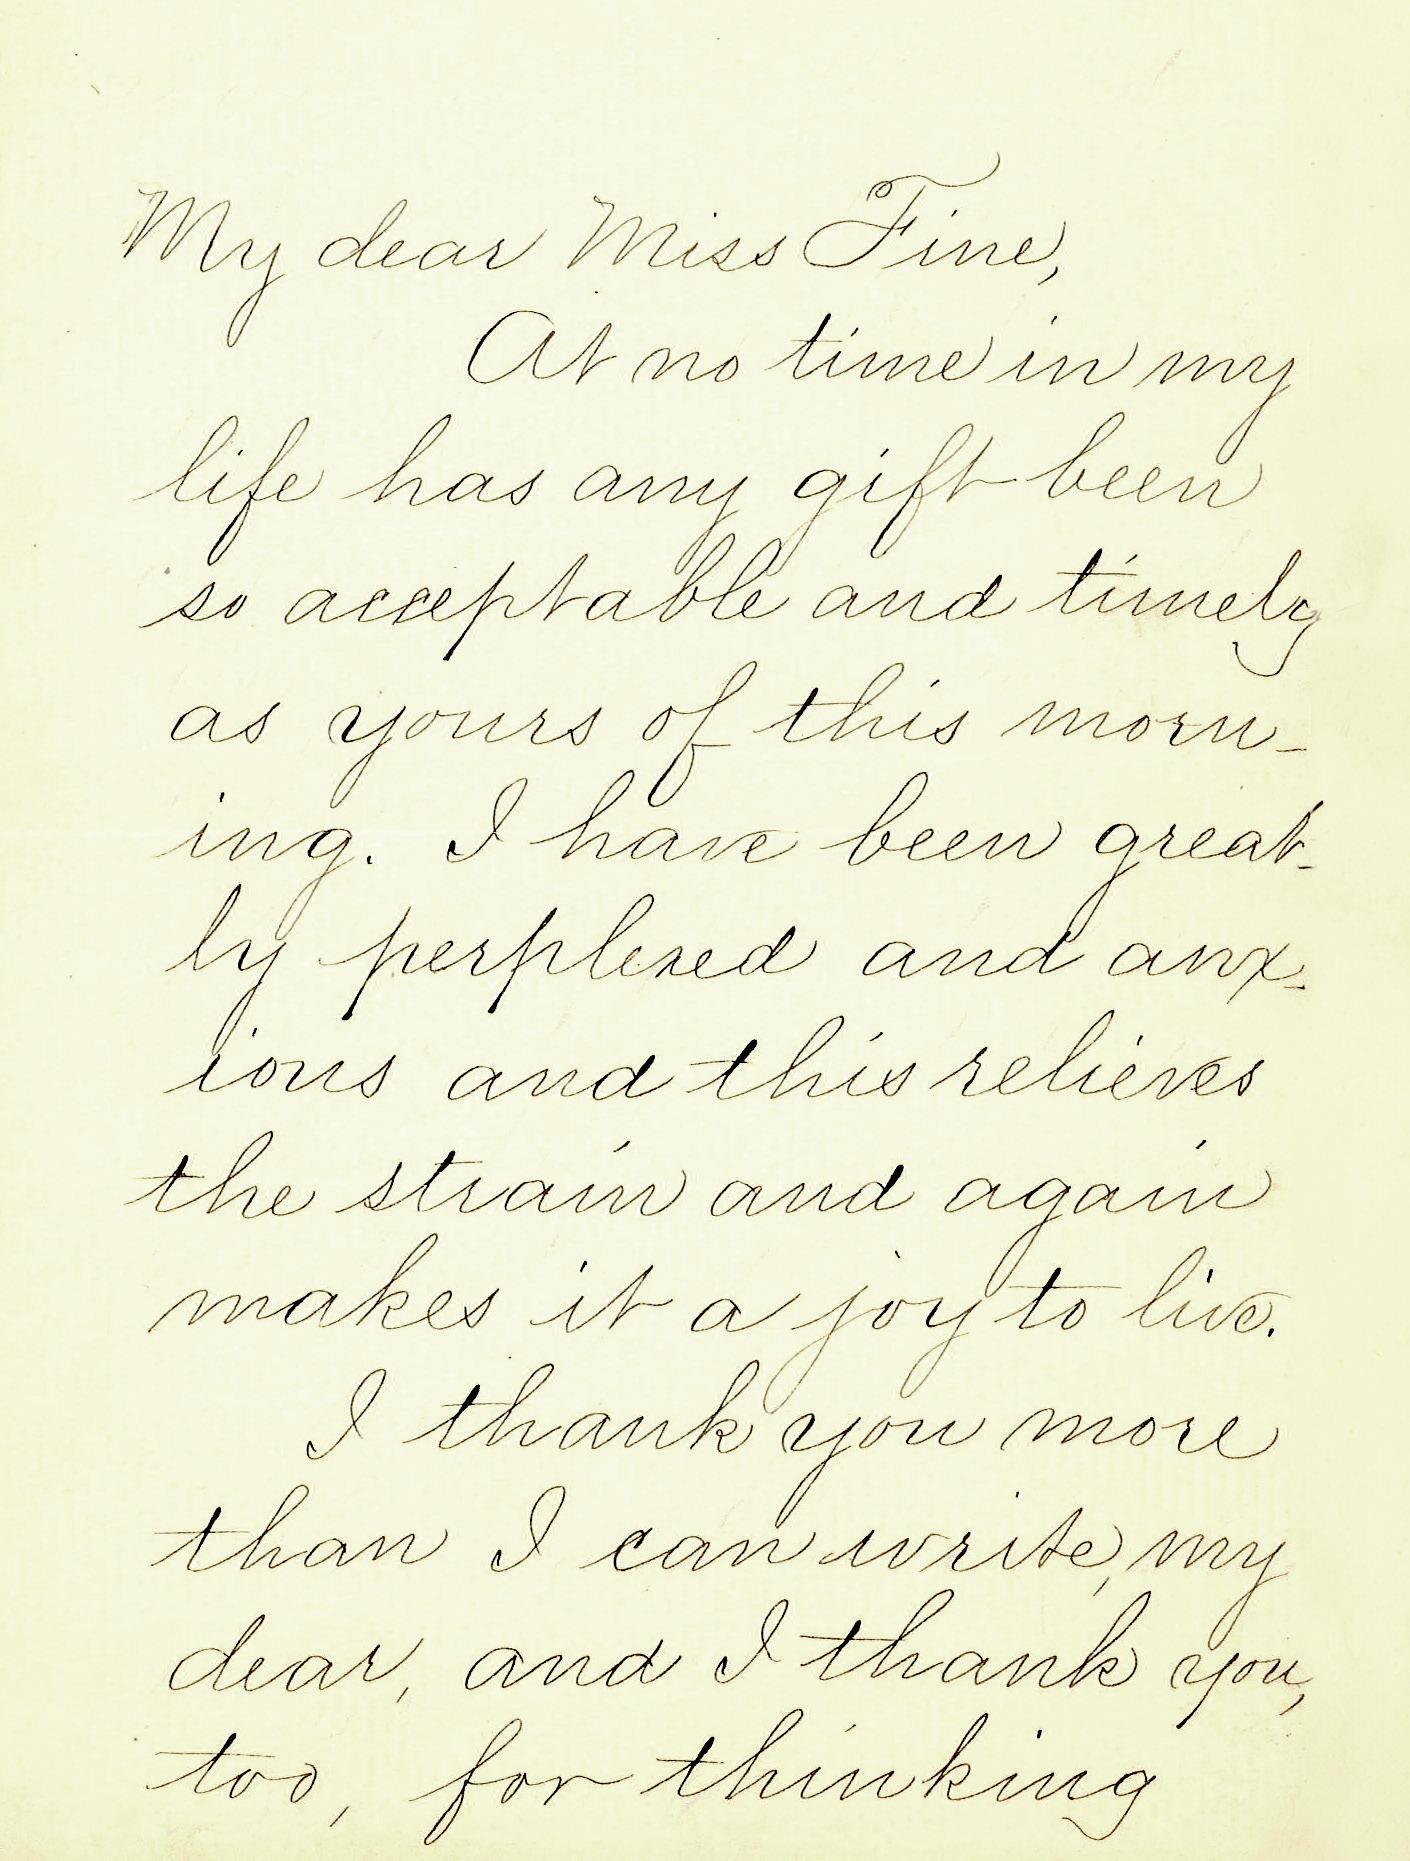 My dear Miss Fine,
At no time in my
life has any gift been
so acceptable and timely
as yours of this morn-
ing. I have been great-
ly perplexed and anx-
ious and this relieves
the strain and again
makes it a joy to live.
I thank you more
than I can write, my
dear, and I thank you,
too, for thinking